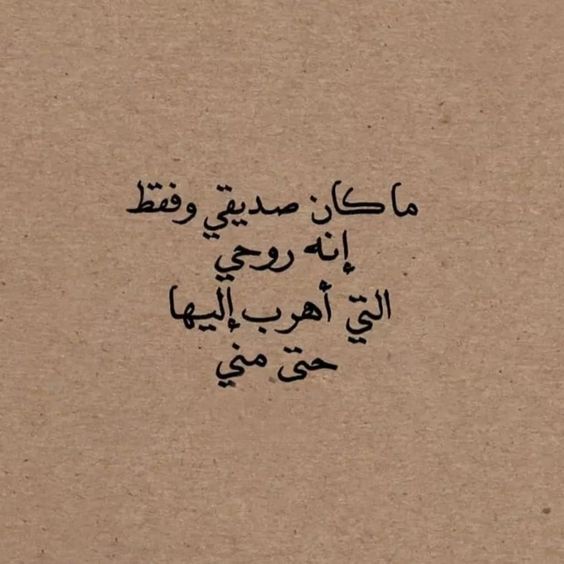 ما كان صديقي وفقط
إنه روحي
التي أهرب إليها
حتى مني